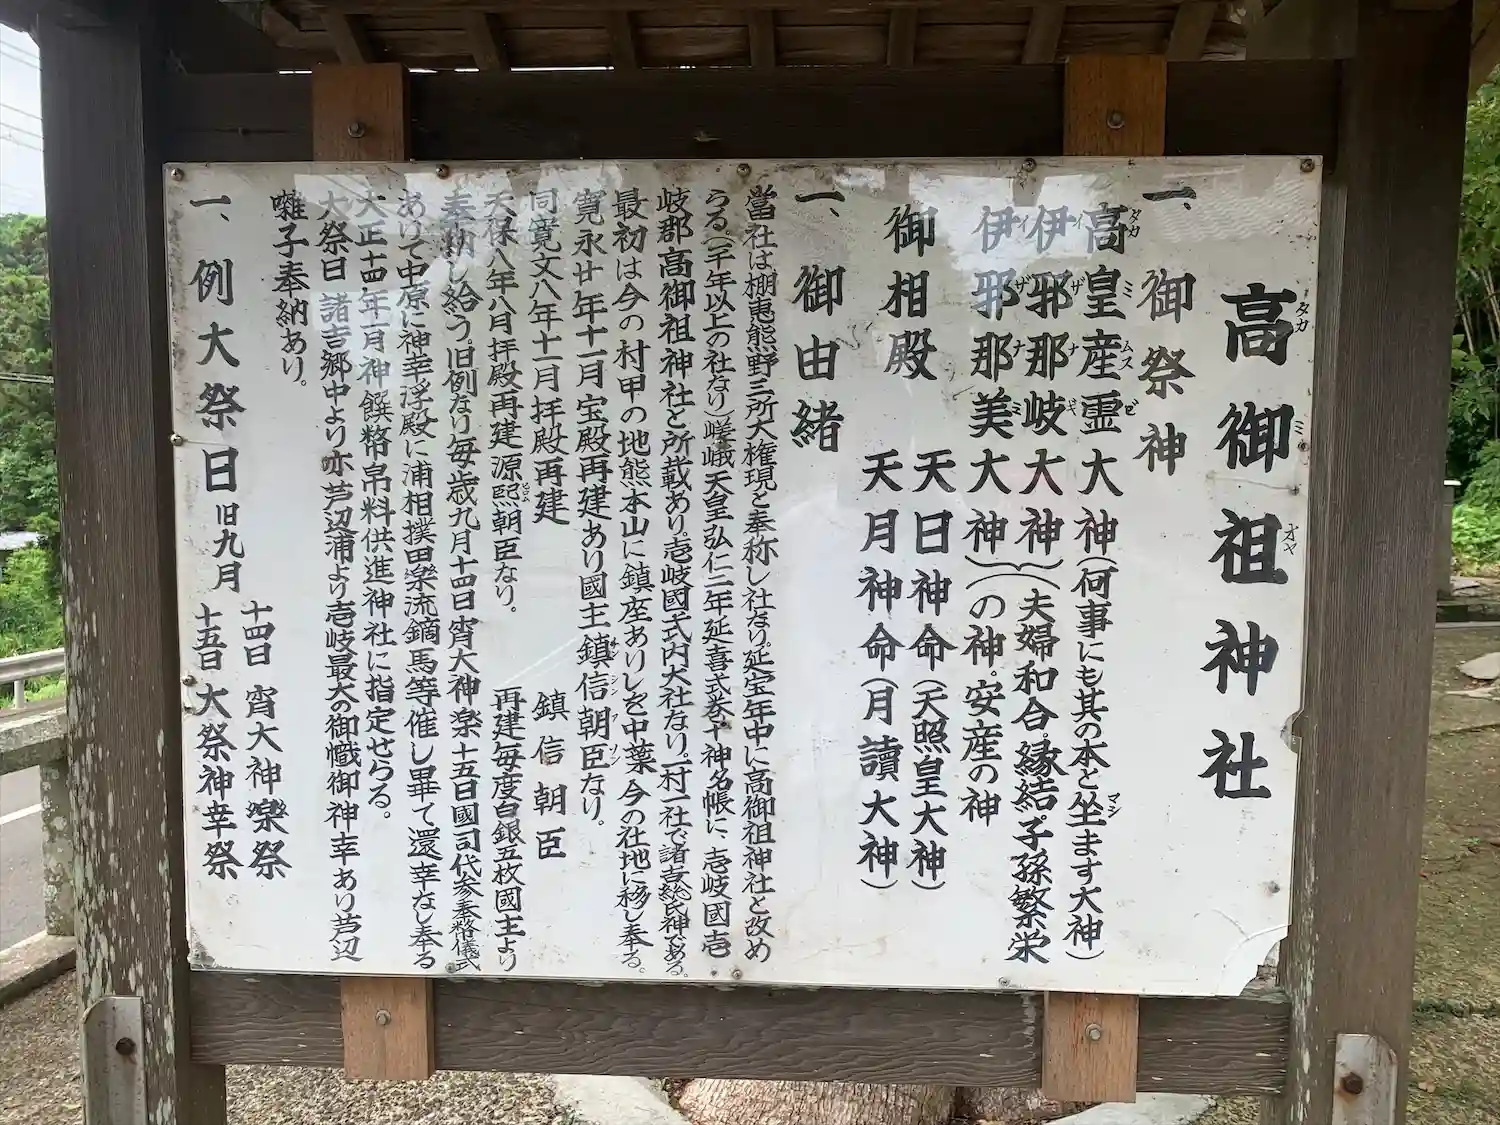 高御祖神社
タカ ミ オヤ
一、御祭神
高皇産霊大神(何事にも其の本と坐ます大神)
タカ ミ ムス ビ マシ
伊邪那岐大神}(夫婦和合。縁結。子孫繁栄
イ ザ ナ ギ
伊邪那美大神}(の神。安産の神
イ ザ ナ ミ
御相殿 天日神命(天照皇大神)
天月神命(月讀大神)
一、御由緒
當社は棚恵熊野三所大権現と奉称し社なり。延宝年中に高御祖神社と改め
らる。(千年以上の社なり)嵯峨天皇弘仁二年延喜式巻十神名帳に、壱岐國壱
岐郡高御祖神社と所載あり。壱岐國式内大社なり。一村一社で諸吉総氏神である。
最初は今の村甲の地熊本山に鎮座ありしを中葉今の社地に移し奉る。
寛永廿年十一月宝殿再建あり國主鎮信朝臣なり。
シゲ シン アソン
同寛文八年十一月拝殿再建 鎮信朝臣
天保八年八月拝殿再建源熙朝臣なり。 再建毎度白銀五枚國主より
ヒロム
奉納し給う。旧例なり毎歳九月十四日宵大神楽十五日國司代参奉幣儀式
あけて中原に神幸浮殿に浦相撲田楽流鏑馬等催し畢て還幸なし奉る
大正十四年一月神饌幣帛料供進神社に指定せらる。
大祭日 諸吉郷中より亦芦辺浦より壱岐最大の御幟御神幸あり芦辺
囃子奉納あり。
一、例大祭日 旧九月 十四日 宵大神樂祭
十五日 大祭神幸祭